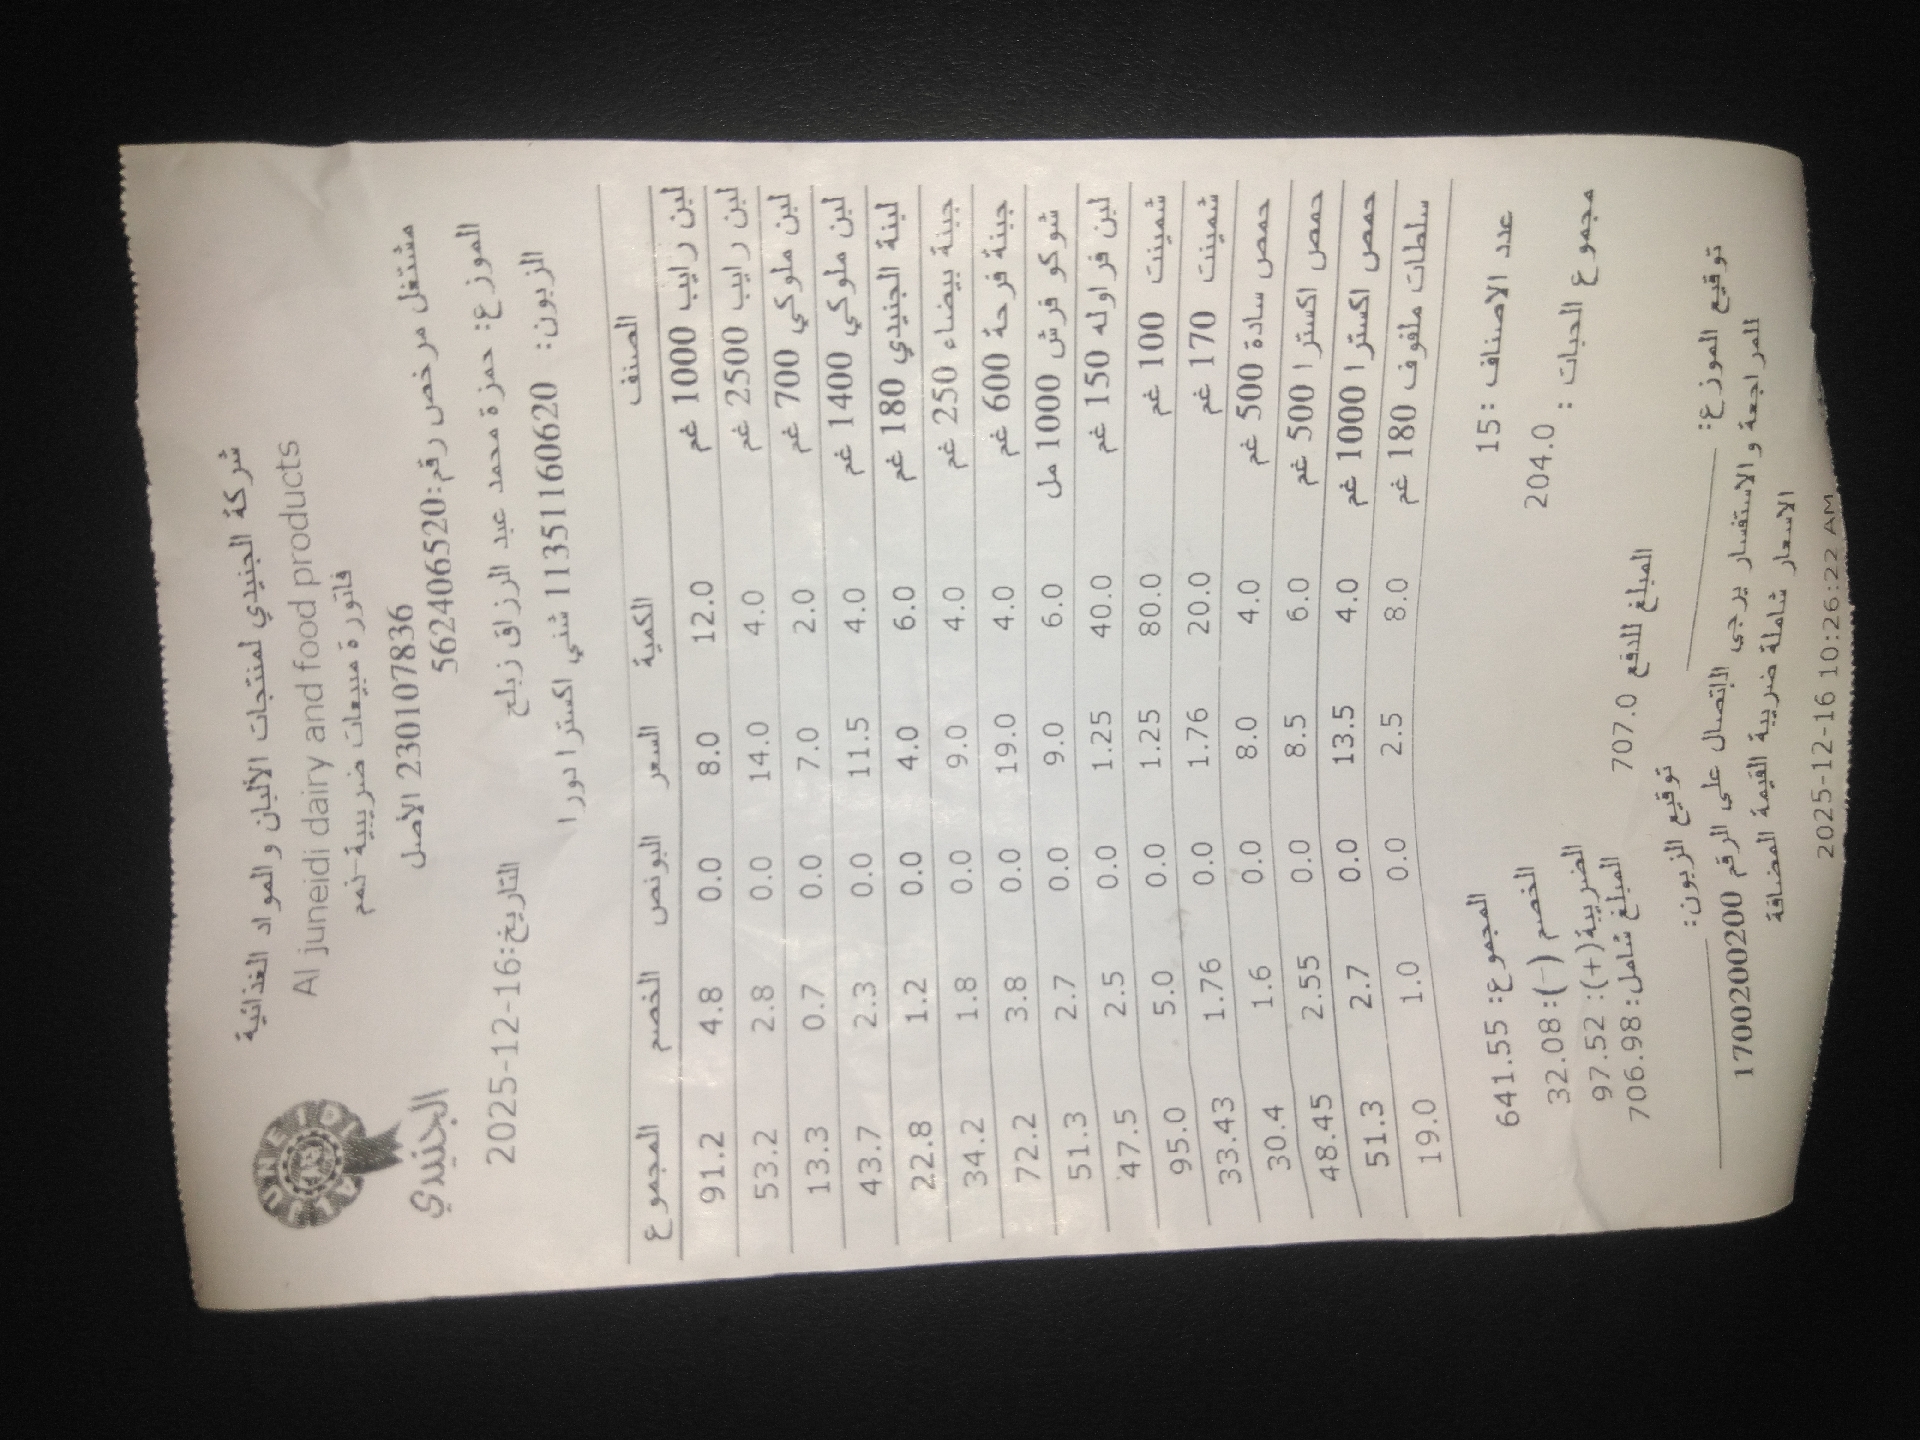 JUNEIDI
الجنيدي
شركة الجنيدي لمنتجات الألبان والمواد الغذائية
Al juneidi dairy and food products
فاتورة مبيعات ضريبية-ذمم
230107836 الأصل
مشتغل مرخص رقم:562406520
الموزع: حمزة محمد عبد الرزاق زبلح
التاريخ:2025-12-16
الزبون: 11351160620 شني اكسترا دورا
الصنف الكمية السعر البونص الخصم المجموع
لبن رايب 1000 غم 12.0 8.0 0.0 4.8 91.2
لبن رايب 2500 غم 4.0 14.0 0.0 2.8 53.2
لبن ملوكي 700 غم 2.0 7.0 0.0 0.7 13.3
لبن ملوكي 1400 غم 4.0 11.5 0.0 2.3 43.7
لبنة الجنيدي 180 غم 6.0 4.0 0.0 1.2 22.8
جبنة بيضاء 250 غم 4.0 9.0 0.0 1.8 34.2
جبنة فرحة 600 غم 4.0 19.0 0.0 3.8 72.2
شوكو فرش 1000 مل 6.0 9.0 0.0 2.7 51.3
لبن فراوله 150 غم 40.0 1.25 0.0 2.5 47.5
شمينت 100 غم 80.0 1.25 0.0 5.0 95.0
شمينت 170 غم 20.0 1.76 0.0 1.76 33.43
حمص سادة 500 غم 4.0 8.0 0.0 1.6 30.4
حمص اكسترا 500 غم 6.0 8.5 0.0 2.55 48.45
حمص اكسترا 1000 غم 4.0 13.5 0.0 2.7 51.3
سلطات ملفوف 180 غم 8.0 2.5 0.0 1.0 19.0
عدد الاصناف :15
المجموع: 641.55
مجموع الحبات : 204.0
الخصم (-): 32.08
الضريبة(+): 97.52
المبلغ شامل: 706.98
المبلغ للدفع 707.0
توقيع الموزع: توقيع الزبون:
للمراجعة والاستفسار يرجى الإتصال على الرقم 1700200200
الاسعار شاملة ضريبة القيمة المضافة
2025-12-16 10:26:22 AM